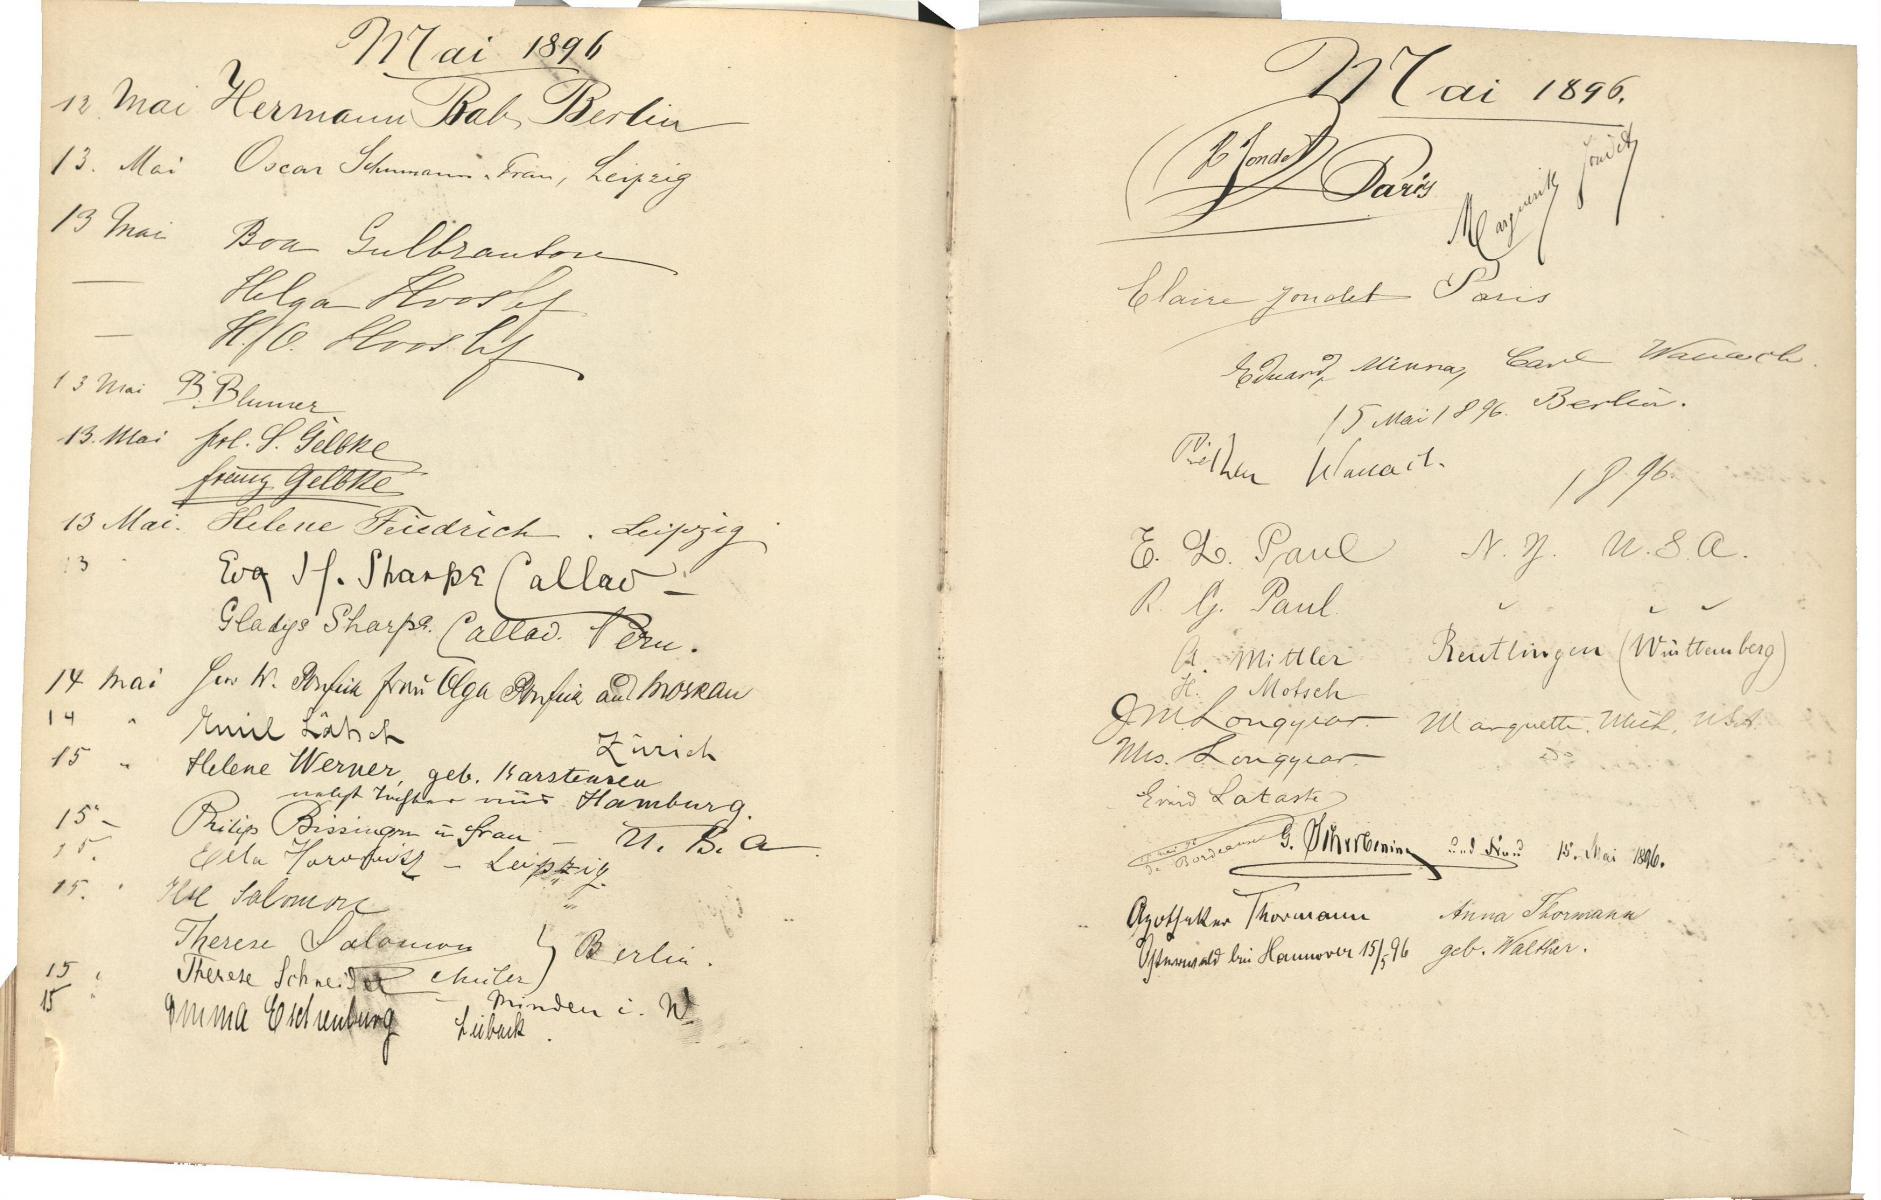 Mai 1896
12. Mai Hermann Bab, Berlin
13. Mai Oscar Schumann u. Frau, Leipzig
13 Mai Boa Gulbranson
— Helga
— H.
13 Mai B. Blumer
13. Mai S. Gelbke
Gelbke
13 Mai. Helene Friedrich. Leipzig
13 " Eva Sharpe Callao —
Gladys Sharpe. Callao. Peru.
14 Mai Herr W. Frau Olga aus Moskau
14 " Emil Lötsch Zürich
15 " Helene Werner, geb. Karstensen
nebst Tochter aus Hamburg.
15 – Philip Bissinger u Frau — U. S. A.
15. Ella Horowitz – Leipzig.
15. " Ilse Salomon "
Therese Salomon } Berlin.
15 " Therese Schneider Minden i. W
15 " Emma Eschenburg Lübeck.
Mai 1896.
Jondet Paris
Marguerite Jondet
Claire Jondet Paris
Eduard, Minna, Carl Wanach.
15 Mai 1896. Berlin.
Wanach. 1896.
E. L. Paul N. Y. U. S. A.
R. G. Paul " " "
A. Mittler Reutlingen (Württemberg)
H. Motsch
J M Longyear Marquette, Mich, USA.
Mrs. Longyear. Do
Lataste
Bordeaux
G. und Frau 15. Mai 1896.
Apotheker Thormann Anna Thormann
Osterwald bei Hannover 15/5 96 geb. Walther.